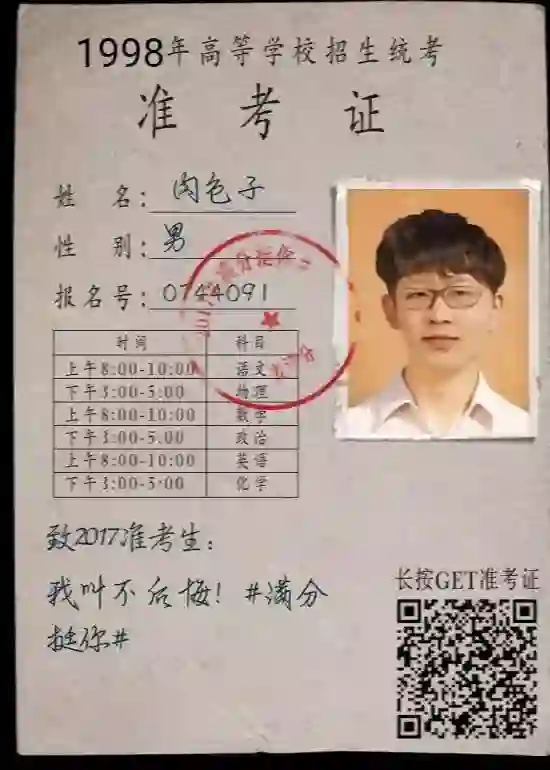 1998年高等学校招生统考
准考证
姓 名：肉色子
性 别：男
报名号：0744091
时间 科目
上午8:00-10:00 语文
下午3:00-5:00 物理
上午8:00-10:00 数学
下午3:00-5.00 政治
上午8:00-10:00 英语
下午3:00-5:00 化学
致2017准考生：
我叫不后悔！#满分
挺你#
长按GET准考证